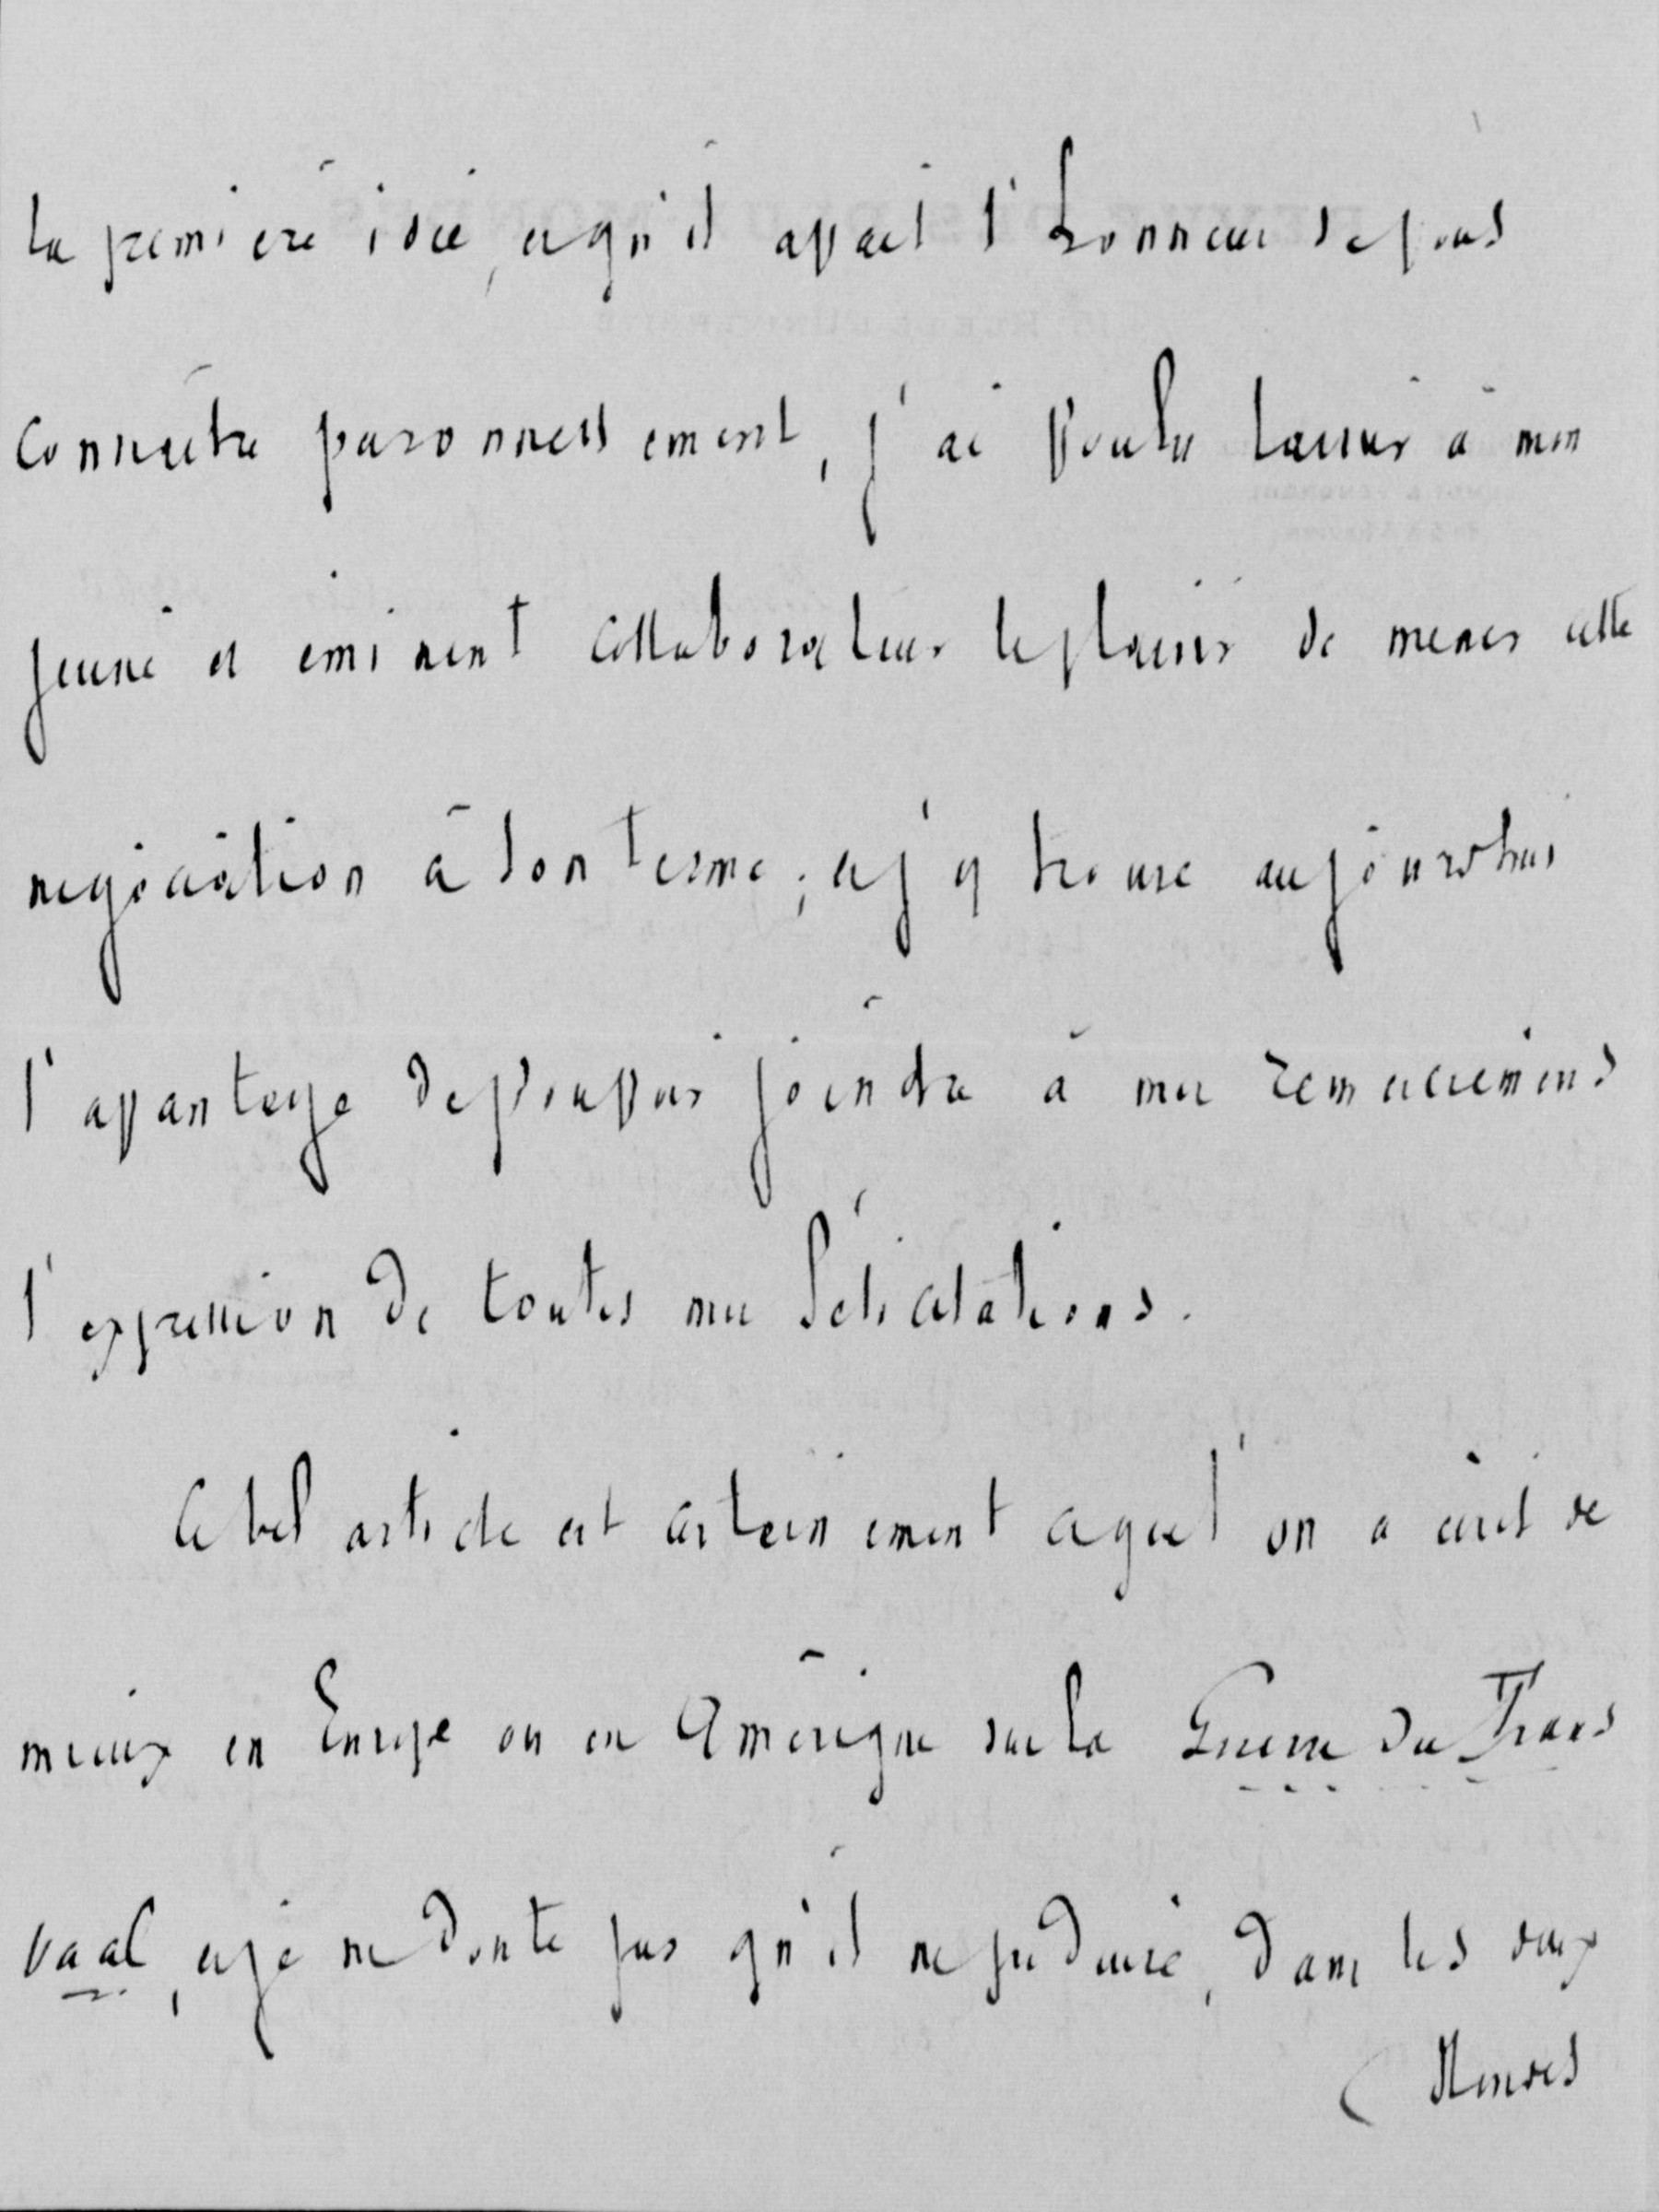 la première idée, et qu'il avait l'honneur de vous
connaître personnellement, j'ai voulu laisser à mon
jeune et éminent collaborateur le plaisir de mener cette
négociation à son terme ; et j'y trouve aujourd'hui
l'avantage de pouvoir joindre à mes remerciemens
l'expression de toutes mes félicitations.
Ce bel article est certainement ce que l'on a écrit de
mieux en Europe ou en Amérique sur la Guerre du Trans
vaal, et je ne doute pas qu'il ne produise, dans les deux
Mondes